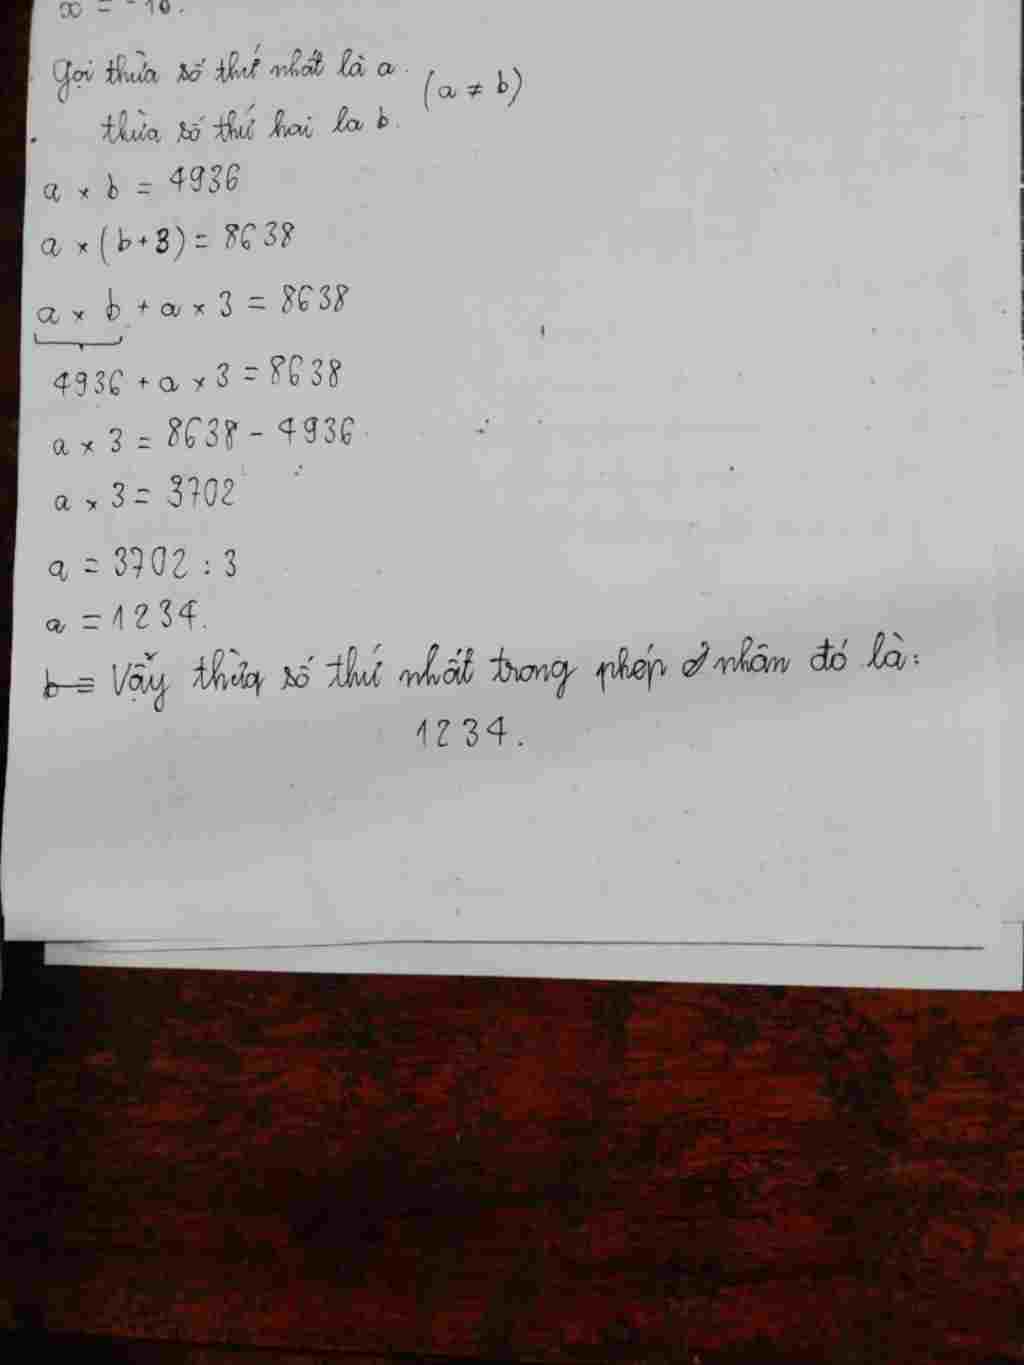 x = -10.
Gọi thừa số thứ nhất là a.
(a ≠ b)
thừa số thứ hai la b.
a × b = 4936
a × (b + 3) = 8638
a × b + a × 3 = 8638
4936 + a × 3 = 8638
a × 3 = 8638 - 4936
a × 3 = 3702
a = 3702 : 3
a = 1234.
Vậy thừa số thứ nhất trong phép nhân đó là:
1234.